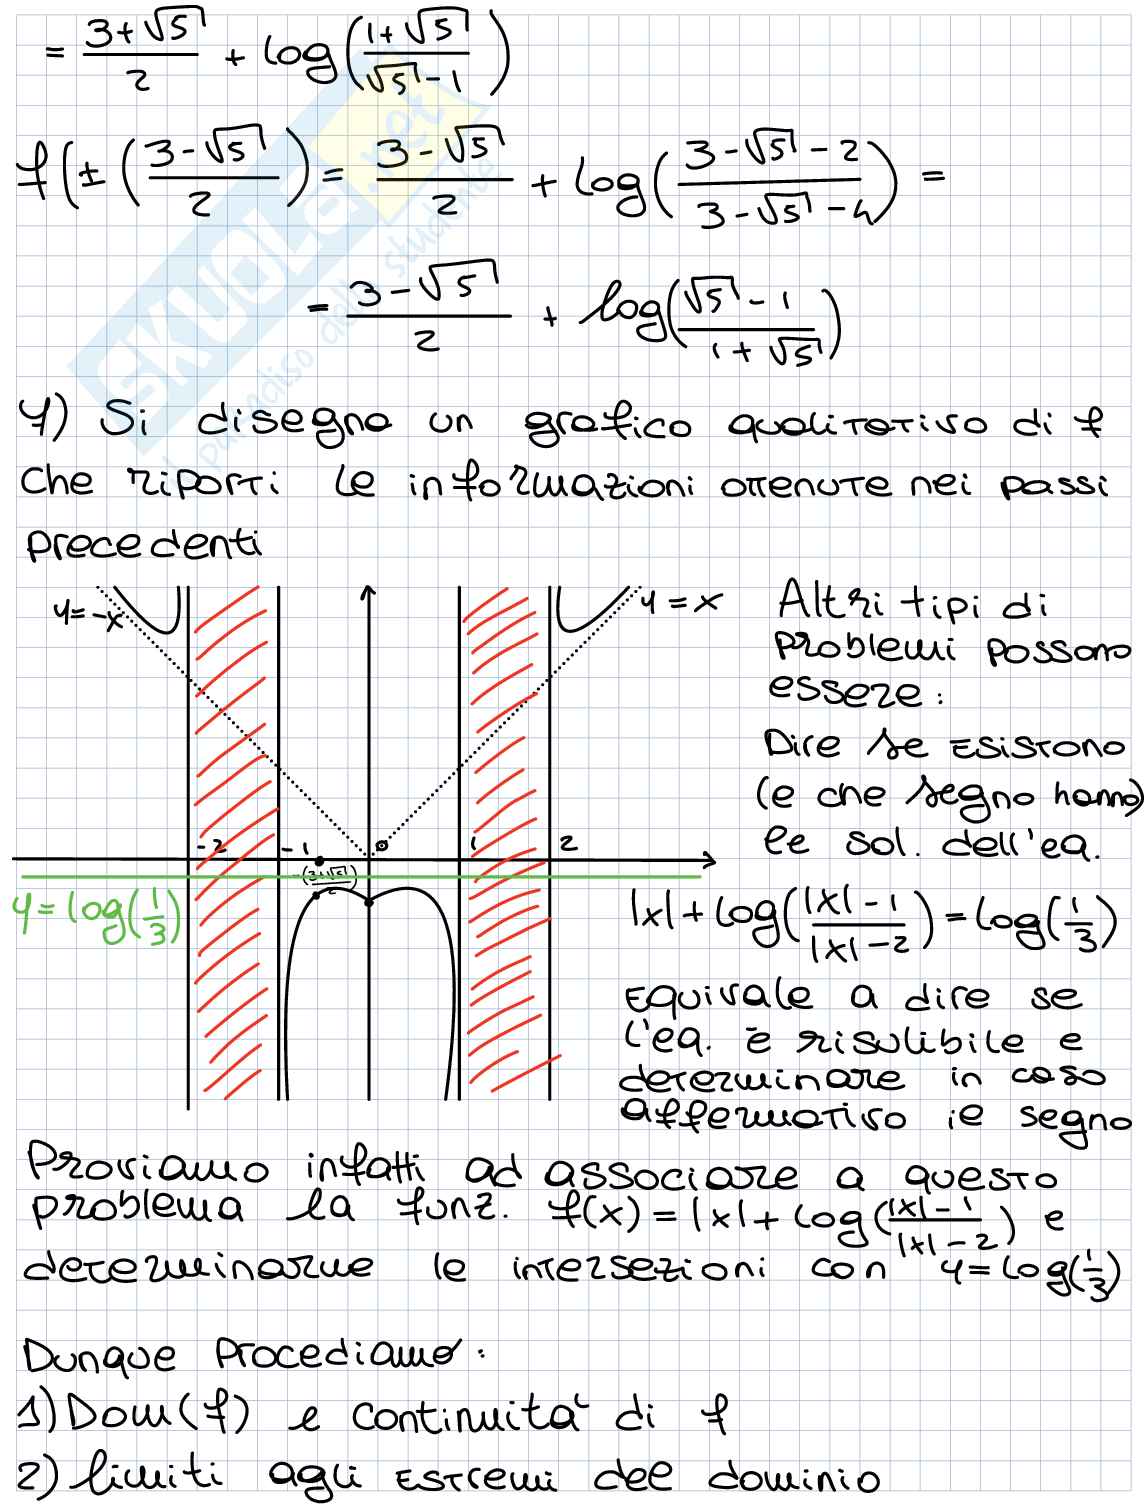 = (3+√5)/2 + log((1+√5)/(√5-1))
f(±(3-√5)/2) = (3-√5)/2 + log((3-√5-2)/(3-√5-4)) =
= (3-√5)/2 + log((√5-1)/(1+√5))
7) Si disegna un grafico qualitativo di f
che riporti le informazioni ottenute nei passi
precedenti
y=-x
y=x
-2
-1
0
1
2
-(3+√5)/2
y=log(1/3)
Altri tipi di
problemi possono
essere:
Dire se esistono
(e che segno hanno)
le sol. dell'eq.
|x|+log((|x|-1)/(|x|-2))=log(1/3)
Equivale a dire se
l'eq. è risulibile e
determinare in caso
affermativo il segno
Proviamo infatti ad associare a questo
problema la funz. f(x)=|x|+log((|x|-1)/(|x|-2)) e
determinarne le intersezioni con y=log(1/3)
Dunque procediamo:
1) Dom(f) e continuità di f
2) limiti agli estremi del dominio
SKUOLA.net
il paradiso dello studente